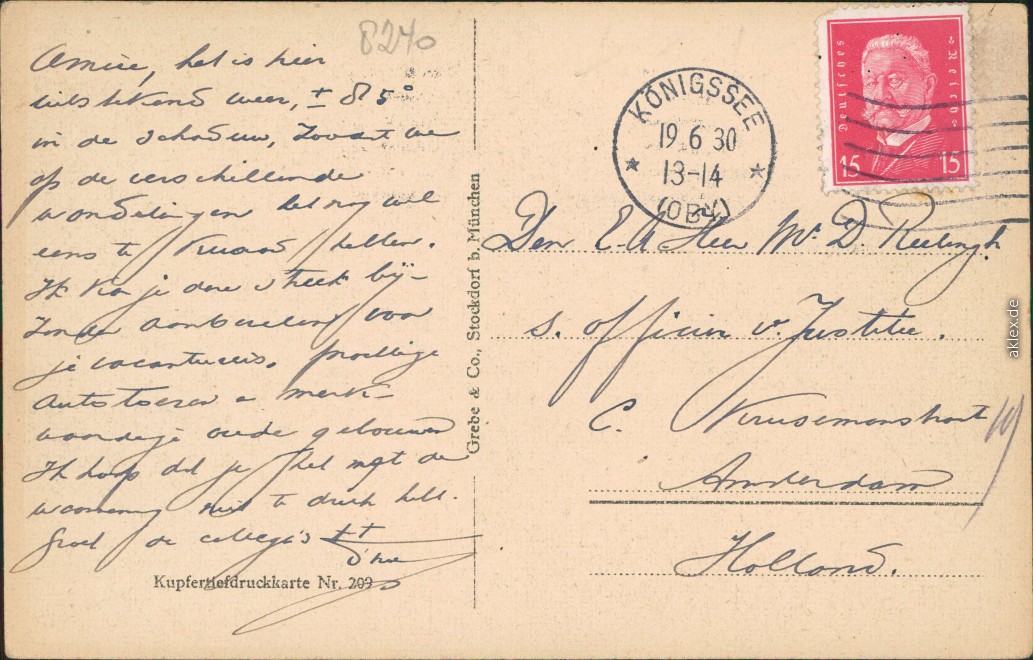 8240
Amice, het is hier
uitstekend weer, ± 85°
in de schaduw, zoodat we
op de verschillende
wandelingen het nog wel
eens te kwaad hebben.
Ik kan je deze streek bij-
zonder aanbevelen voor
je vacantiereis. prachtige
autotoeren & merk-
waardige oude gebouwen
Ik hoop dat je het met de
warming niet te druk hebt.
Groet de collega's tt
Kupfertiefdruckkarte Nr. 209
Grebe & Co., Stockdorf b. München
KÖNIGSSEE
19 6 30
13-14
(OBY)
Deutsches Reich
15 15
Den E. A. Heer Mr. D. Reelingh.
s. officier v. Justitie.
C. Krusemanstraat 10
Amsterdam
Holland.
aklex.de